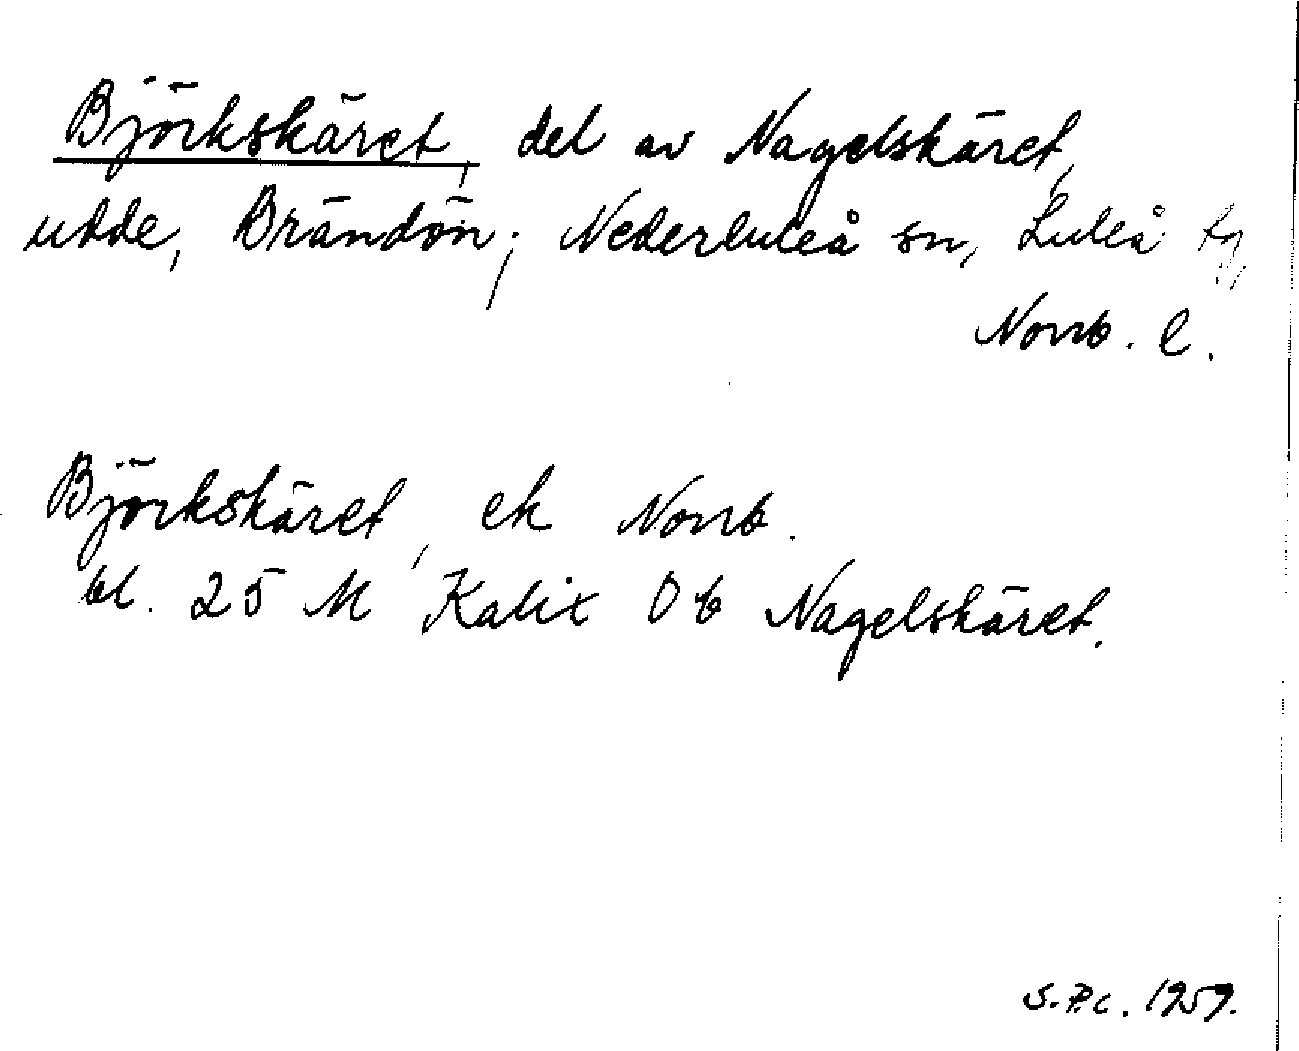 Björkskäret, del av Nagelskäret,
udde, Brändön; Nederluleå sn, Luleå tg,
Norrb. l.
Björkskäret, ek Norrb.
bl. 25 M Kalix Ob Nagelskäret.
S.P.c. 1959.